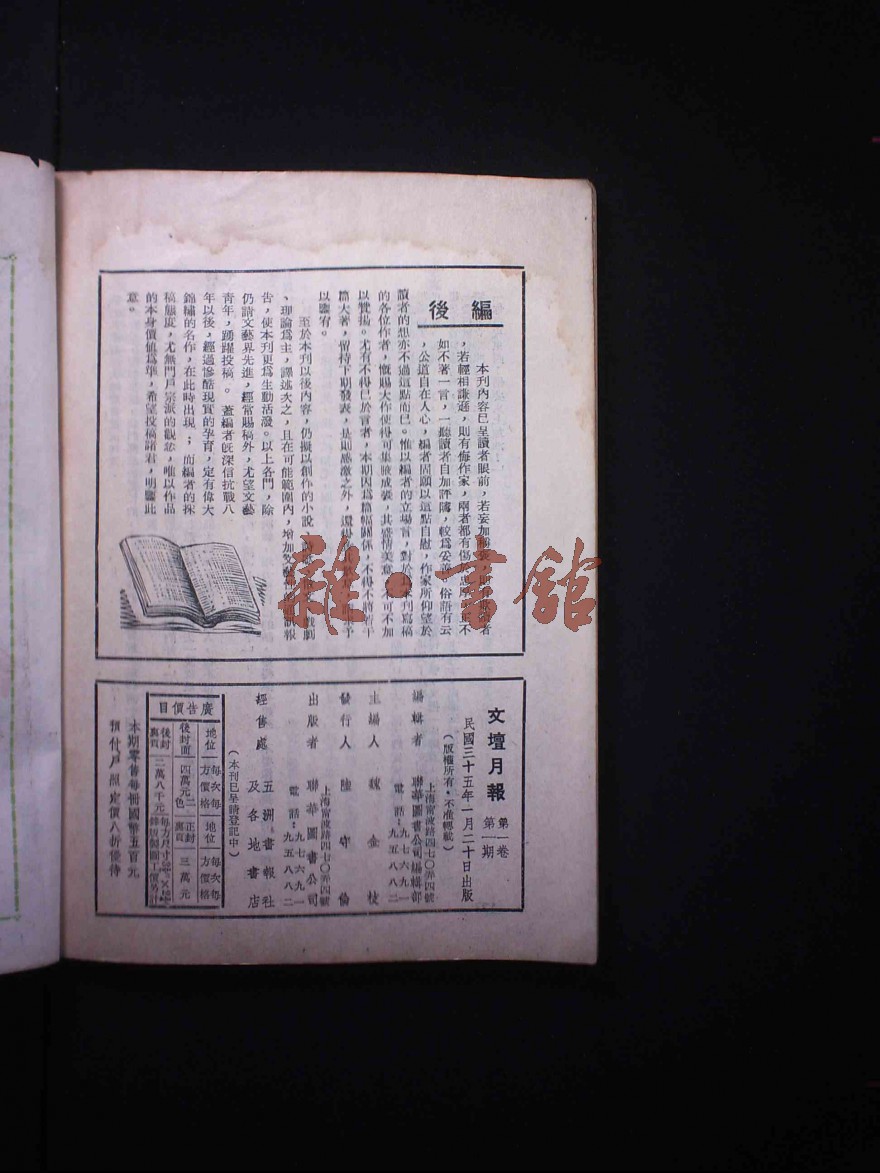 編後
本刊內容已呈讀者眼前，若妄加
，若輕相謙遜，則有侮作家，兩者都有傷
如不著一言，一聽讀者自加評隲，較爲妥善。俗語有云
，公道自在人心，編者固願以這點自慰，作家所仰望於
讀者的想亦不過這點而已。惟以編者的立場言，對於
刊寫稿
的各位作者，慨賜大作使得可集腋成裘，其盛情美意
不可不加
以贊揚。尤有不得已於言者，本期因爲篇幅關係，不得不將若干
篇大著，留待下期發表，是則感激之外，還
予
以鑒宥。
至於本刊以後內容，仍擬以創作的小說
戲劇
、理論爲主，譯述次之，且在可能範圍內，增加文藝
報
告，使本刊更爲生動活潑。以上各門，除
仍請文藝界先進，經常賜稿外，尤望文藝
青年，踴躍投稿。蓋編者旣深信抗戰八
年以後，經過慘酷現實的孕育，定有偉大
錦繡的名作，在此時出現；而編者的採
稿態度，尤無門戶宗派的觀念，唯以作品
的本身價値爲準，希望投稿諸君，明鑒此
意。
雜·書館
文壇月報 第一卷 第一期
民國三十五年一月二十日出版
（版權所有・不准轉載）
編輯者 聯華圖書公司編輯部
上海甯波路四七〇弄四號
電話：九七六九一 九五八八二
主編人 魏金枝
發行人 陸守倫
出版者 聯華圖書公司
上海甯波路四七〇弄四號
電話：九七六九一 九五八八二
經售處 五洲書報社
及各地書店
（本刊已呈請登記中）
廣告價目
地位 每次每方價格 地位 每次每方價格
後封面 四萬元二色 正封裏頁 三萬元
後封裏頁 二萬八千元 每方尺寸
鋅版製圖工價另計
本期零售每冊國幣五百元
預付戶照定價八折優待